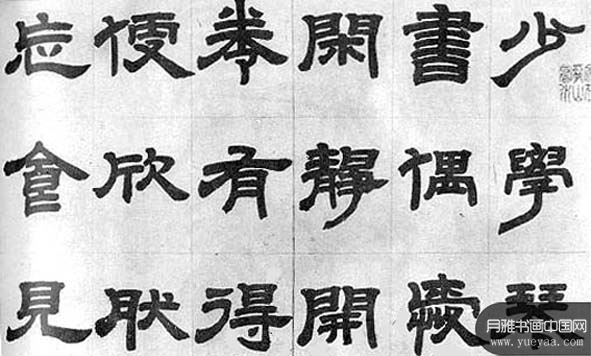 少學琴
書偶愛
閑靜開
卷有得
便欣肰
忘食見
月雅书画中国网
www.yueyaa.com